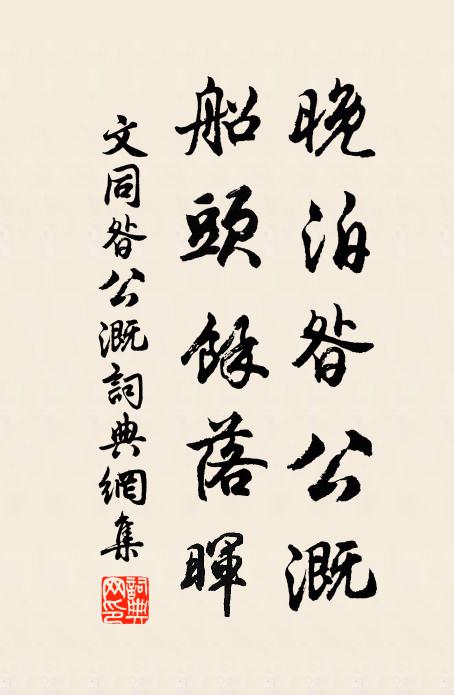 晚泊昝公溉
船頭餘落暉
文同昝公溉詞典網集
詞典網印